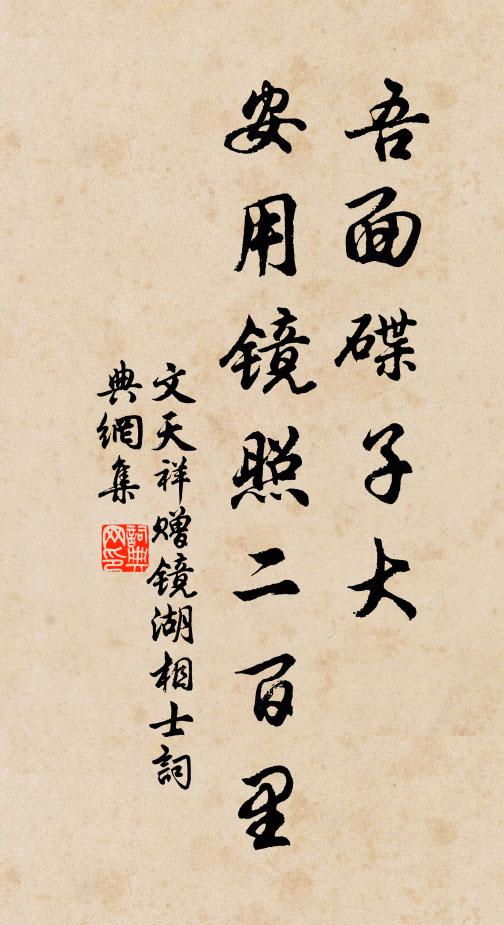 吾面碟子大
安用镜照二百里
文天祥赠镜湖相士詞
典網集
詞典
网印